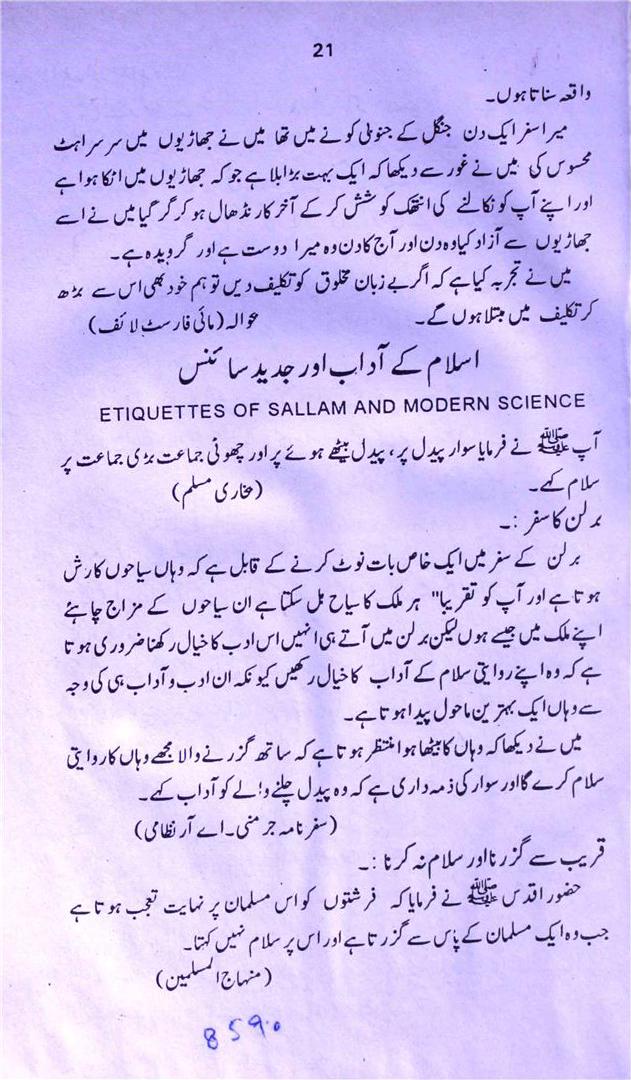 21
واقعہ سناتا ہوں۔
میرا سفر ایک دن جنگل کے جنوبی کونے میں تھا میں نے جھاڑیوں میں سرسراہٹ
محسوس کی میں نے غور سے دیکھا کہ ایک بہت بڑا بلا ہے جو کہ جھاڑیوں میں اٹکا ہوا ہے
اور اپنے آپ کو نکالنے کی انتھک کوشش کر کے آخر کار نڈھال ہو کر گر گیا میں نے اسے
جھاڑیوں سے آزاد کیا وہ دن اور آج کا دن وہ میرا دوست ہے اور گرویدہ ہے۔
میں نے تجربہ کیا ہے کہ اگر بے زبان مخلوق کو تکلیف دیں تو ہم خود بھی اس سے بڑھ
کر تکلیف میں مبتلا ہوں گے۔ حوالہ (مائی فارسٹ لائف)
اسلام کے آداب اور جدید سائنس
ETIQUETTES OF SALLAM AND MODERN SCIENCE
آپ ﷺ نے فرمایا سوار پیدل پر، پیدل بیٹھے ہوئے پر اور چھوٹی جماعت بڑی جماعت پر
سلام کہے۔ (بخاری مسلم)
برلن کا سفر :۔
برلن کے سفر میں ایک خاص بات نوٹ کرنے کے قابل ہے کہ وہاں سیاحوں کا رش
ہوتا ہے اور آپ کو تقریبا" ہر ملک کا سیاح مل سکتا ہے ان سیاحوں کے مزاج چاہئے
اپنے ملک میں جیسے ہوں لیکن برلن میں آتے ہی انہیں اس ادب کا خیال رکھنا ضروری ہوتا
ہے کہ وہ اپنے روایتی سلام کے آداب کا خیال رکھیں کیونکہ ان ادب و آداب ہی کی وجہ
سے وہاں ایک بہترین ماحول پیدا ہوتا ہے۔
میں نے دیکھا کہ وہاں کا بیٹھا ہوا منتظر ہوتا ہے کہ ساتھ گزرنے والا مجھے وہاں کا روایتی
سلام کرے گا اور سوار کی ذمہ داری ہے کہ وہ پیدل چلنے والے کو آداب کہے۔
(سفر نامہ جرمنی۔ اے آر نظامی)
قریب سے گزرنا اور سلام نہ کرنا :۔
حضور اقدس ﷺ نے فرمایا کہ فرشتوں کو اس مسلمان پر نہایت تعجب ہوتا ہے
جب وہ ایک مسلمان کے پاس سے گزرتا ہے اور اس پر سلام نہیں کہتا۔
(منہاج المسلمین)